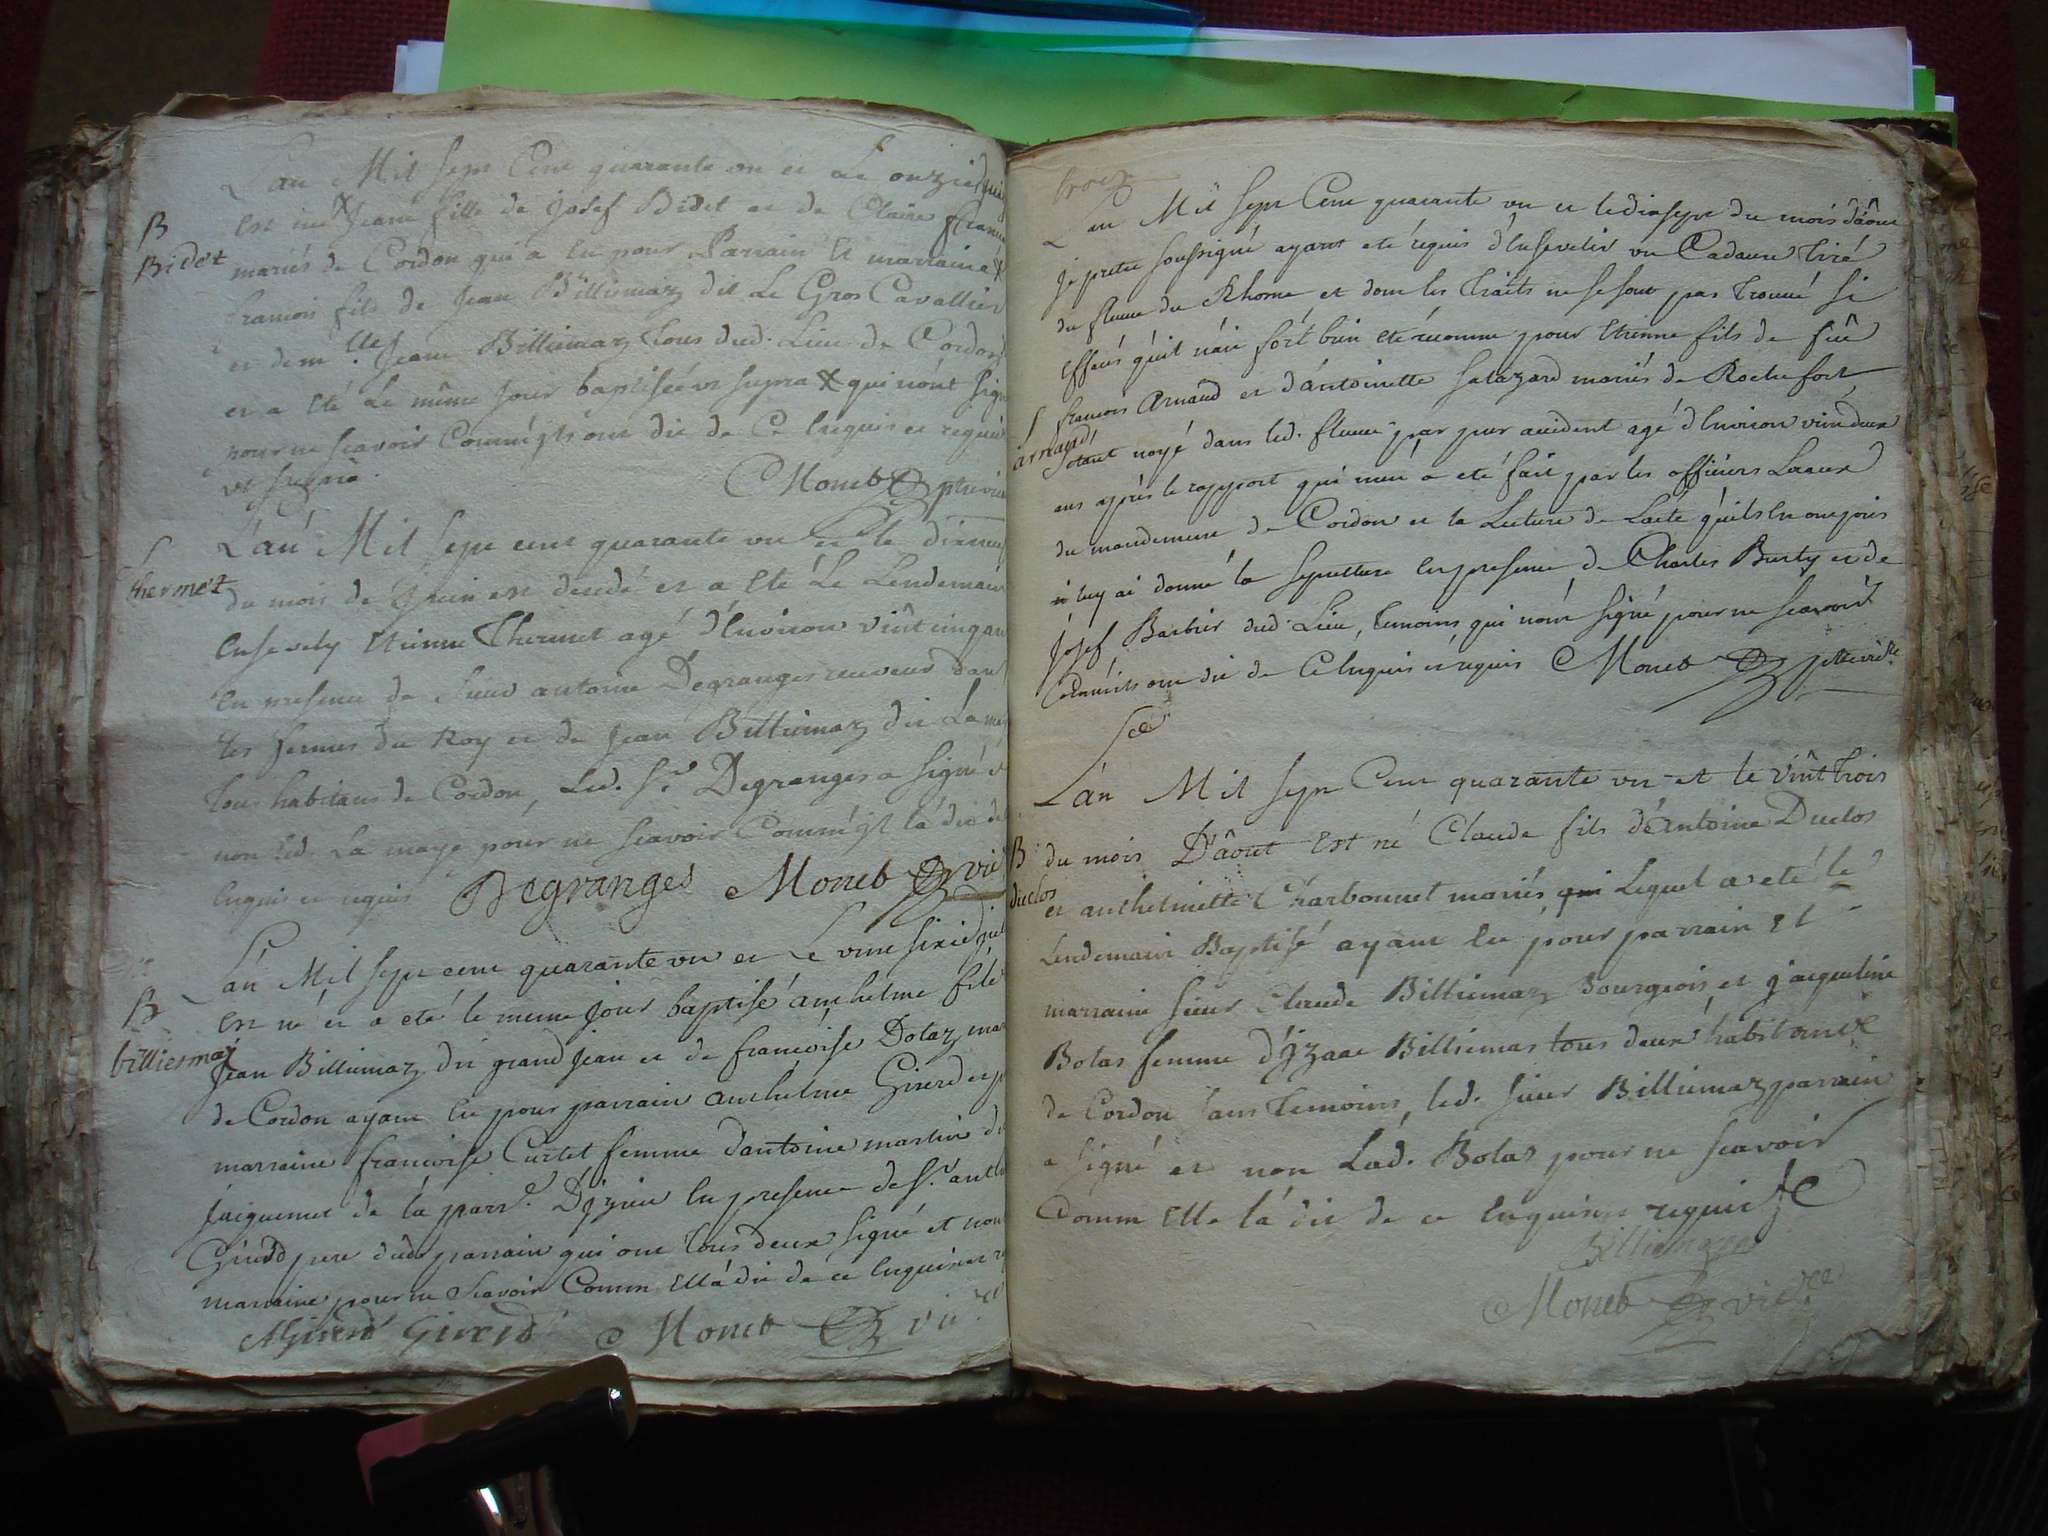 L'an Mil Sept Cent quarante un et le onzie
B
est née Jeane fille de Josef Bidet et de Claire
Bidet
mariés de Cordon qui a eu pour Parrain et marraine
francois fils de Jean Billiemaz dit Le Gros Cavallier
et dem.lle Jeane Billiemaz tous dud. Lieu de Cordon
et a été Le même Jour baptisée ut supra qui n'ont sign
pour ne scavoir comm'ils ont dit de ce Enquis et requis
ut supra
Moneb
L'an Mil Sept cent quarante un et le dixneuf
S
thermet
du mois de Juin est decedé et a été Le Lendemain
Ensevely Etienne Thermet agé d'Environ vint cinq an
En presence de Sieur antoine Degranges receveur dan
les fermes du Roy et de Jean Billiemaz dit La ma
tous habitans de Cordon, Led. Sr. Degranges a signé e
non Led. La maye pour ne scavoir Comm'il l'a dit de
Enquis et requis Degranges Moneb vic
L'an Mil sept cent quarante un et Le vint sixie
B
est né et a eté le meme jour baptisé anthelme fils
billiemaz
Jean Billiemaz dit grand Jean et de francoise Dolaz mar
de Cordon ayant Eu pour parrain anthelme Girerd et p
marraine francoise Curtet femme d'antoine martin d
Juiguemet de la parr.e D'Izieu En presence de Sr. anth
Girerd pere dud. parrain qui ont tous deux signé et non
marraine pour ne scavoir Comm Ell'a dit de ce Enquise et re
AGirerd Girerd Moneb vic
L'an Mil Sept Cent quarante un et le dixsept du mois d'aôut
Je pretre soussigné ayant eté requis d'Ensevelir un Cadavre tiré
du fleuve du Rhosne et dont les traits ne se sont pas trouvé si
effacés qu'il n'aie fort bien eté reconnu pour Etienne fils de fûe
S
francois Arnaud et d'antoinette Salazard mariés de Rochefort
arnaud
s'etant noyé dans led. fleuve par pur accident agé d'Environ vint deux
ans après le rapport qui m'en a eté fait par les officiers Locaux
du mandement de Cordon et la Lecture de L'acte qu'ils En ont pris
luy ai donné la sepulture En presence de Charles Burty et de
Josef Barbier dud. Lieu, temoins, qui n'ont signé pour ne scavoir
Comm'ils ont dit de ce Enquis et requis Moneb
L'an Mil Sept Cent quarante un et le vint trois
B
du mois D'aôut Est né Claude fils d'antoine Duclos
duclos
et anthelmette Charbonnet mariés qui Lequel a eté le
Lendemain Baptisé ayant Eu pour parrain Et
marraine sieur Claude Billiemaz Bourgeois et jacqueline
Bolas femme d'Izaac Billiemas tous deux habitans
de Cordon sans temoins, led. sieur Billiemaz parrain
a signé et non Lad. Bolas pour ne scavoir
Comm Elle l'a dit de ce Enquise et requise
Billiemaz
Moneb vic